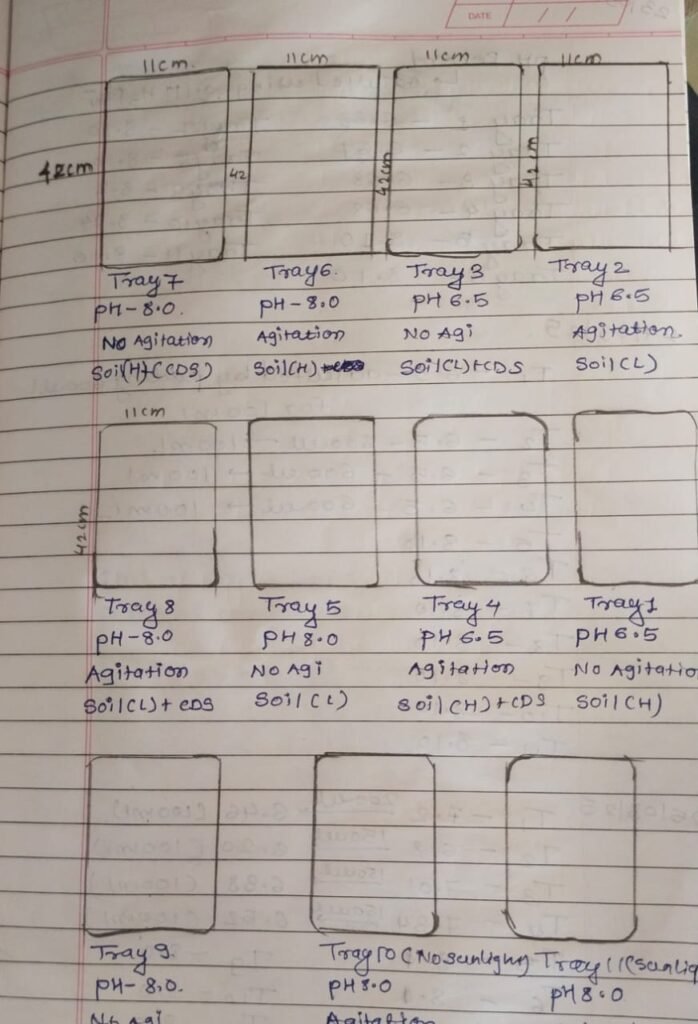 DATE / /
11cm. 11cm 11cm 11cm
42cm 42 42cm 42cm
Tray 7 Tray 6. Tray 3 Tray 2
pH-8.0. pH-8.0 pH 6.5 pH 6.5
No Agitation Agitation No Agi Agitation.
Soil(H)+(CDS) Soil(H) Soil(L)+CDS Soil(L)
11cm
42cm
Tray 8 Tray 5 Tray 4 Tray 1
pH-8.0 pH 8.0 pH 6.5 pH 6.5
Agitation No Agi Agitation No Agitatio
Soil(L)+CDS Soil(L) Soil(H)+CDS Soil(H)
Tray 9. Tray 10 (No sunlight) Tray 11 (Sunlig
pH-8.0. pH 8.0 pH 8.0
No Agi Agitation